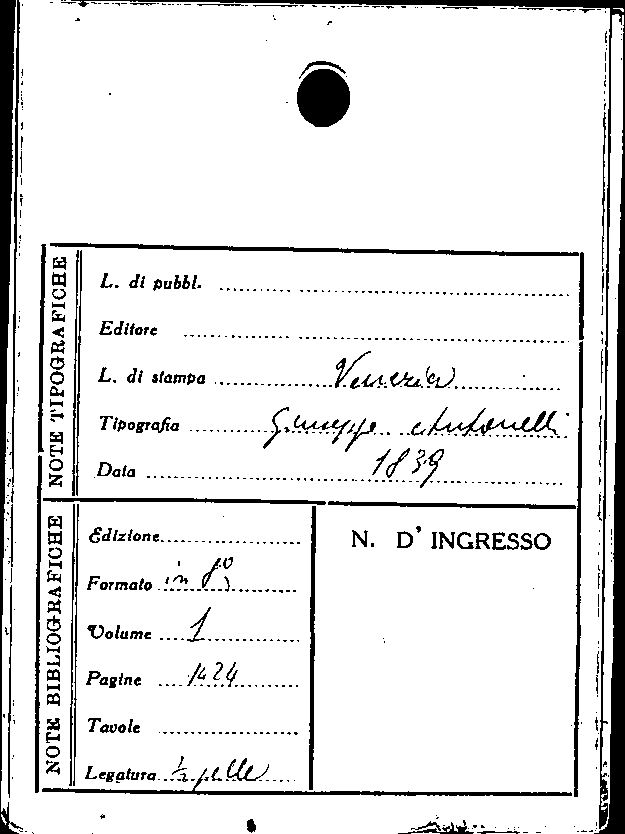 NOTE TIPOGRAFICHE
L. di pubbl.
Editore
L. di stampa Venezia
Tipografia Giuseppe Antonelli
Data 1839
NOTE BIBLIOGRAFICHE
Edizione
Formato in 8º
Volume 1
Pagine
Tavole
Legatura ½ pelle
N. D' INGRESSO